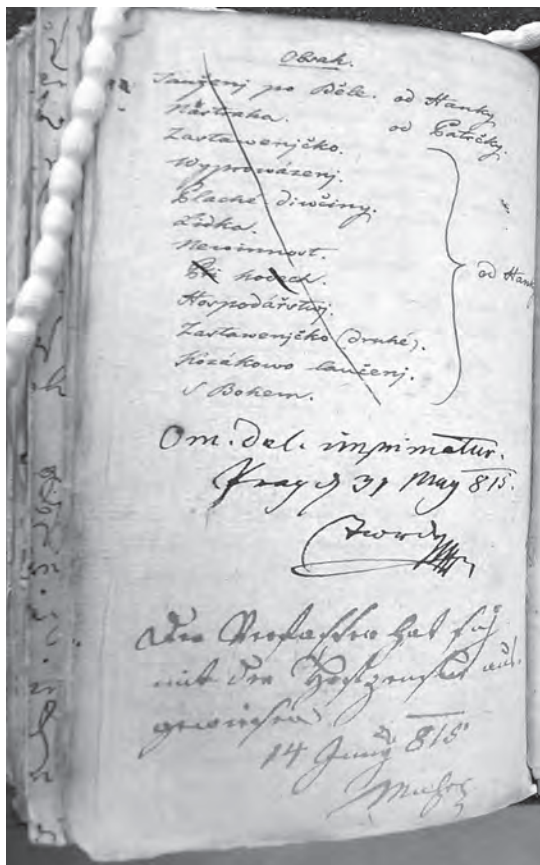 Obsah.
Tauženj po Běle. od Hanky
Nástraha. od Patrčky.
Zastawenjčko.
Wyprowázenj.
Plaché diwčiny.
Lidka.
Newinnost.
Při hodech.
Hospodářstwj.
Zastawenjčko (druhé).
Kozákowo laučenj.
S Bohem.
od Hanky
Om. del. imprimatur.
Prag d 31 May 815.
Der Verfasser hat sich
mit der Hofzensur aus-
gewiesen
14 Juny 815